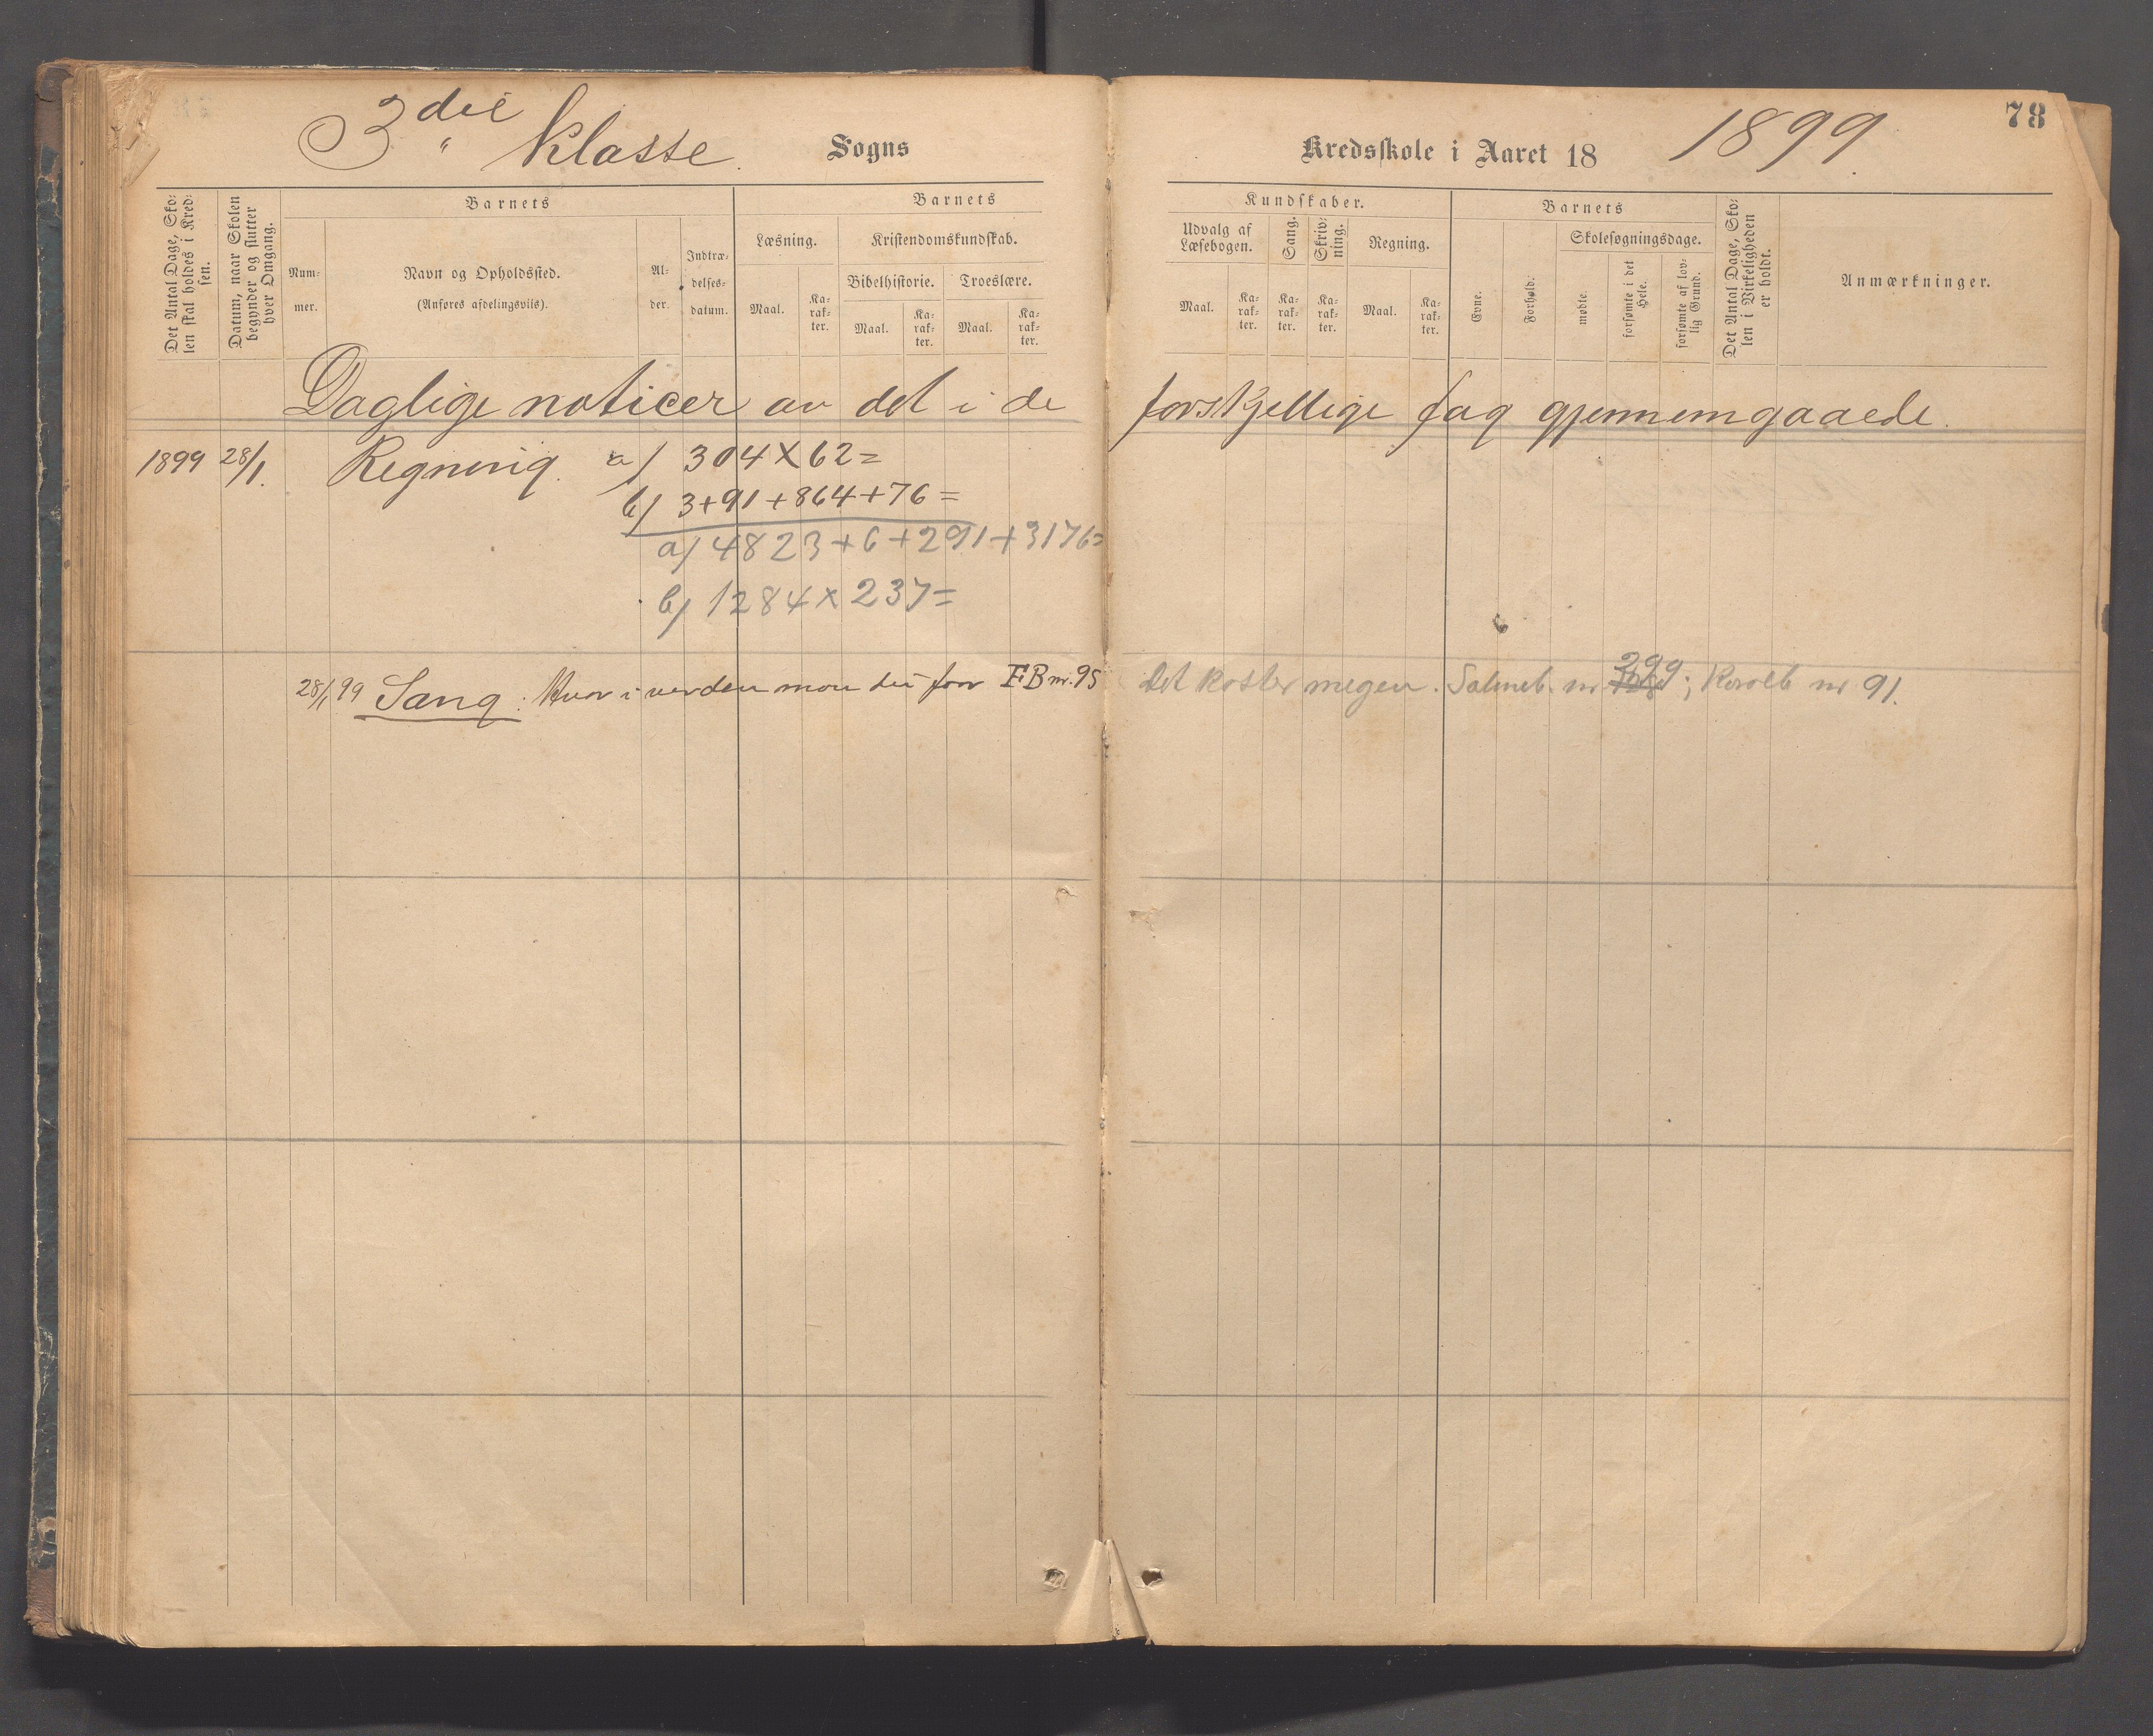 78
3die klasse. Sogns Kredsskole i Aaret 18 1899
Det Antal Dage, Sko-
len skal holdes i Kred-
sen.
Datum, naar Skolen
begynder og slutter
hver Omgang.
Barnets
Num-
mer.
Navn og Opholdssted.
(Anføres afdelingsviis).
Al-
der.
Indtræ-
delses-
datum.
Barnets
Læsning.
Maal.
Ka-
rak-
ter.
Kristendomskundskab.
Bibelhistorie.
Maal.
Ka-
rak-
ter.
Troeslære.
Maal.
Ka-
rak-
ter.
Kundskaber.
Udvalg af
Læsebogen.
Maal.
Ka-
rak-
ter.
Sang.
Ka-
rak-
ter.
Skriv-
ning.
Ka-
rak-
ter.
Regning.
Maal.
Ka-
rak-
ter.
Barnets
Evne.
Forhold.
Skolesøgningsdage.
mødte.
forsømte i det
Hele.
forsømte af lov-
lig Grund.
Det Antal Dage, Sko-
len i Virkeligheden
er holdt.
Anmærkninger.
Daglige noticer av det i de forskjellige fag gjennemgaaede.
1899 28/1. Regning. a) 304×62=
b) 3+91+864+76=
a) 4823+6+291+3176=
b) 1284×237=
28/1 99 Sang: Hvor i verden mon du for F.B nr. 95 Det koster megen. Salmeb. nr 299; Koralb nr 91.